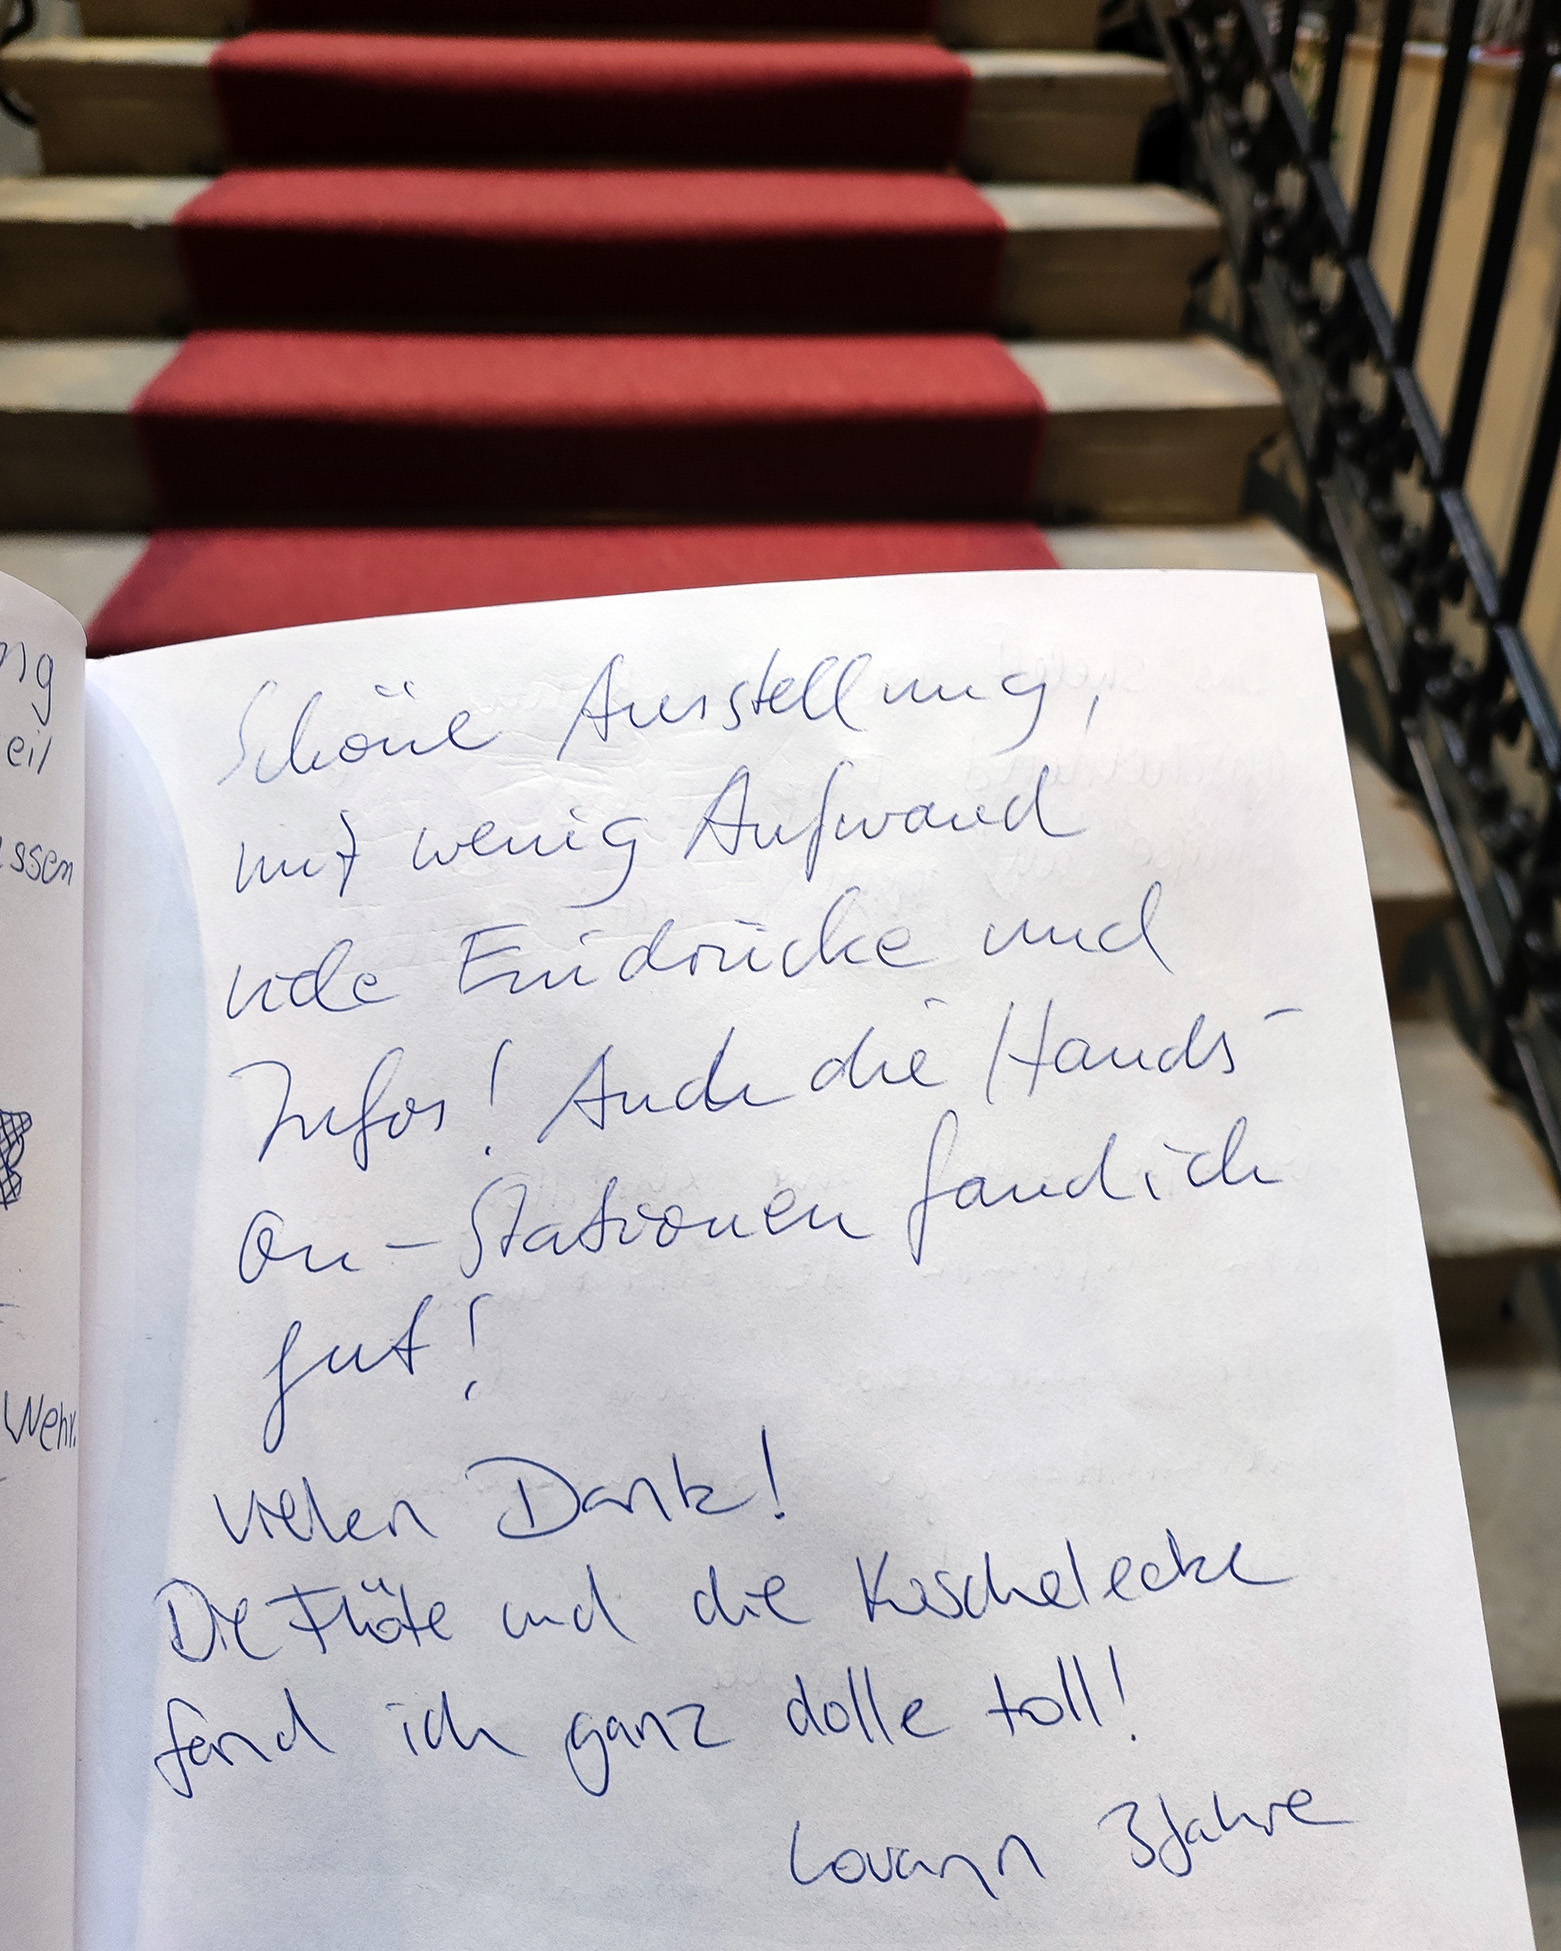 ng
eil
ssen
Wehr.
Schöne Ausstellung,
mit wenig Aufwand
viele Eindrücke und
Infos! Auch die Hands-
on-Stationen fand ich
gut!
vielen Dank!
Die Flöte und die Kuschelecke
fand ich ganz dolle toll!
3 Jahre